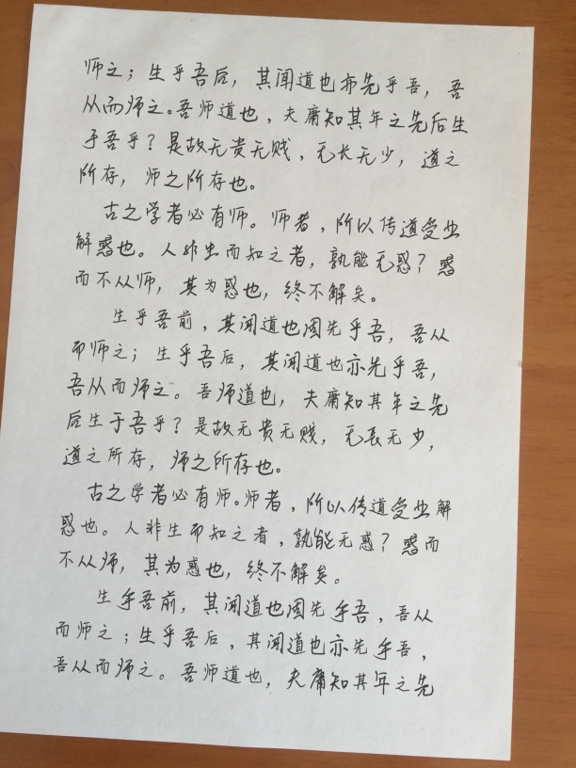 师之；生乎吾后，其闻道也亦先乎吾，吾
从而师之。吾师道也，夫庸知其年之先后生
于吾乎？是故无贵无贱，无长无少，道之
所存，师之所存也。
古之学者必有师。师者，所以传道受业
解惑也。人非生而知之者，孰能无惑？惑
而不从师，其为惑也，终不解矣。
生乎吾前，其闻道也固先乎吾，吾从
而师之；生乎吾后，其闻道也亦先乎吾，
吾从而师之。吾师道也，夫庸知其年之先
后生于吾乎？是故无贵无贱，无长无少，
道之所存，师之所存也。
古之学者必有师。师者，所以传道受业解
惑也。人非生而知之者，孰能无惑？惑而
不从师，其为惑也，终不解矣。
生乎吾前，其闻道也固先乎吾，吾从
而师之；生乎吾后，其闻道也亦先乎吾，
吾从而师之。吾师道也，夫庸知其年之先